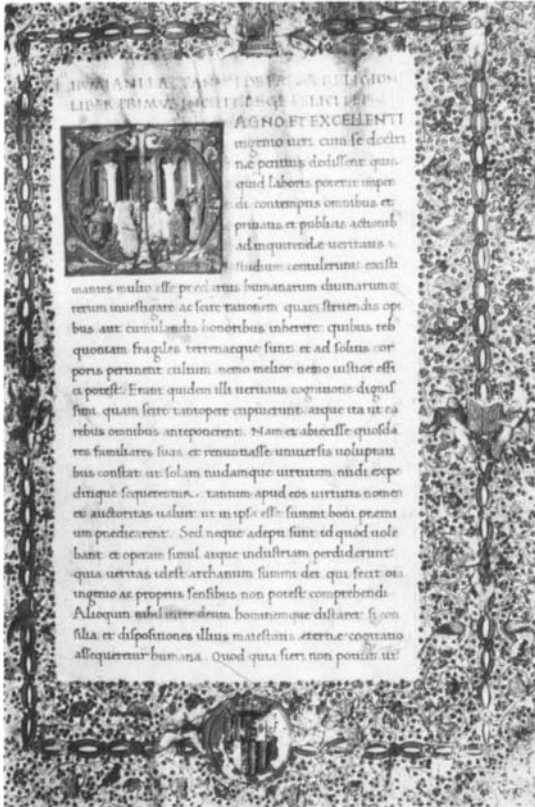 LIBER PRIMUS INCIPIT LEGE FELICITER
AGNO ET EXCELLENTI
ingenio uiri cum se doctri
næ penitus dedissent quic
quid laboris poterat impen
di contemptis omnibus et
priuatis et publicis actionib
ad inquirendæ ueritatis
studium contulerunt existi
mantes multo esse preclarius humanarum diuinarumq
rerum inuestigare ac scire rationem quam struendis opi
bus aut cumulandis honoribus inherere quibus reb
quoniam fragiles terrenaeque sunt et ad solius cor
poris pertinent cultum nemo melior nemo iustior effi
ci potest. Erant quidem illi ueritatis cognitione dignis
simi quam scire tantopere cupiuerunt atque ita ut ea
rebus omnibus anteponerent. Nam et abiecisse quosda
res familiares suas et renuntiasse uniuersis uoluptati
bus constat ut solam nudamque uirtutem nudi expe
ditique sequerentur. tantum apud eos uirtutis nomen
et auctoritas ualuit ut in ipsa esse summi boni præmi
um prædicarent. Sed neque adepti sunt id quod uole
bant et operam simul atque industriam perdiderunt
quia ueritas idest archanum summi dei qui fecit oia
ingenio ac propriis sensibus non potest comprehendi
Alioquin nihil inter deum hominemque distaret si con
silia et dispositiones illius maiestatis æternæ cogitatio
assequeretur humana. Quod quia fieri non potuit ut